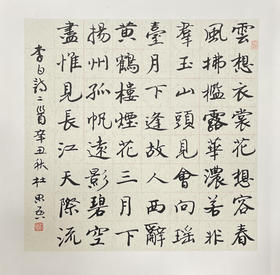 雲想衣裳花想容春
風拂檻露華濃若非
羣玉山頭見會向瑶
臺月下逢故人西辭
黃鶴樓煙花三月下
揚州孤帆遠影碧空
盡惟見長江天際流
李白詩二首辛丑秋杜